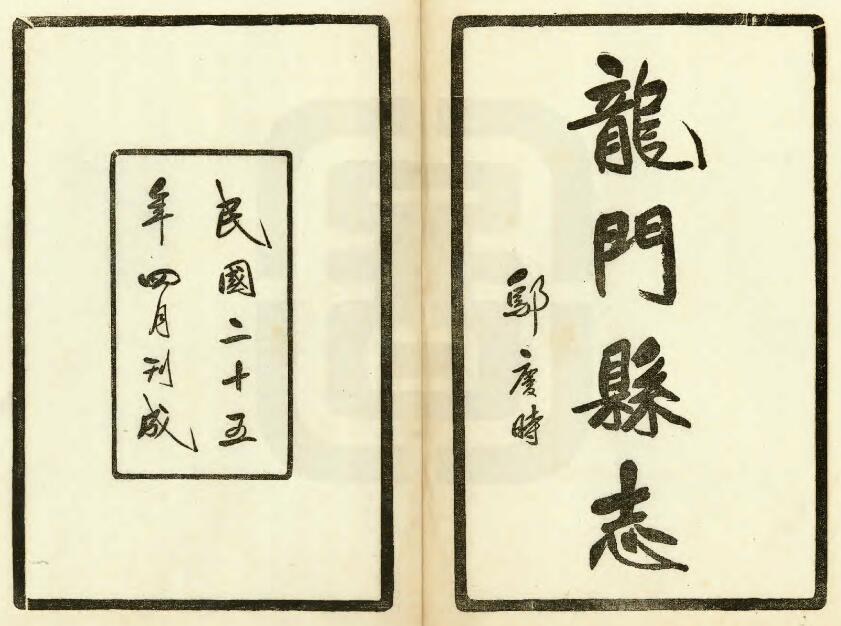 龍門縣志
鄔慶時
民國二十五
年四月刊成